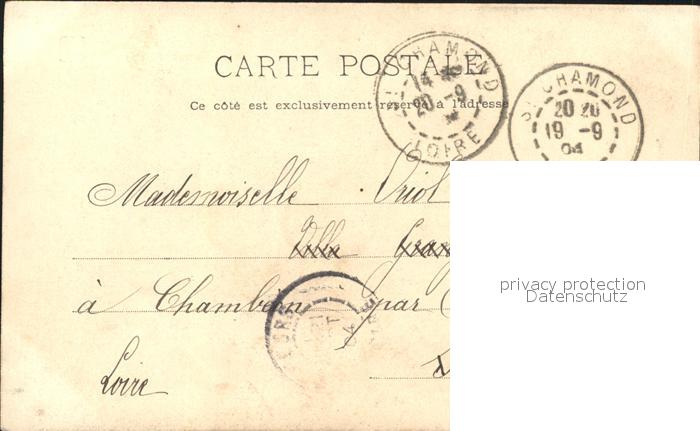 CARTE POSTALE
Ce côté est exclusivement réservé à l'adresse
ST CHAMOND
14
20 -9
LOIRE
ST CHAMOND
20 20
19 -9
04
Mademoiselle Oriol
Villa
à Chambéon par
Loire
privacy protection
Datenschutz